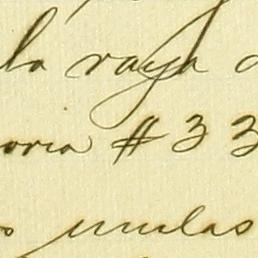 la raya
oria # 33
mulas